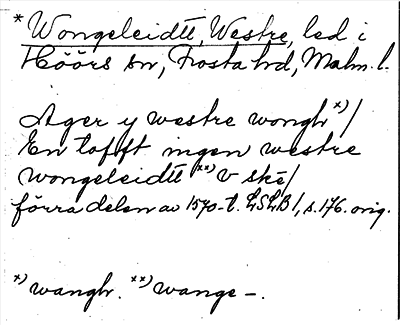 * Wongeleidtt, Westre, led i
Höörs sn, Frosta hd, Malm. l.
Ager y westre wongh x) /
En tofft ingen westre
wongeleidtt xx) v ske /
förra delen av 1570-t. LSLB 1, s. 176. orig.
x) wangh. xx) wange -.